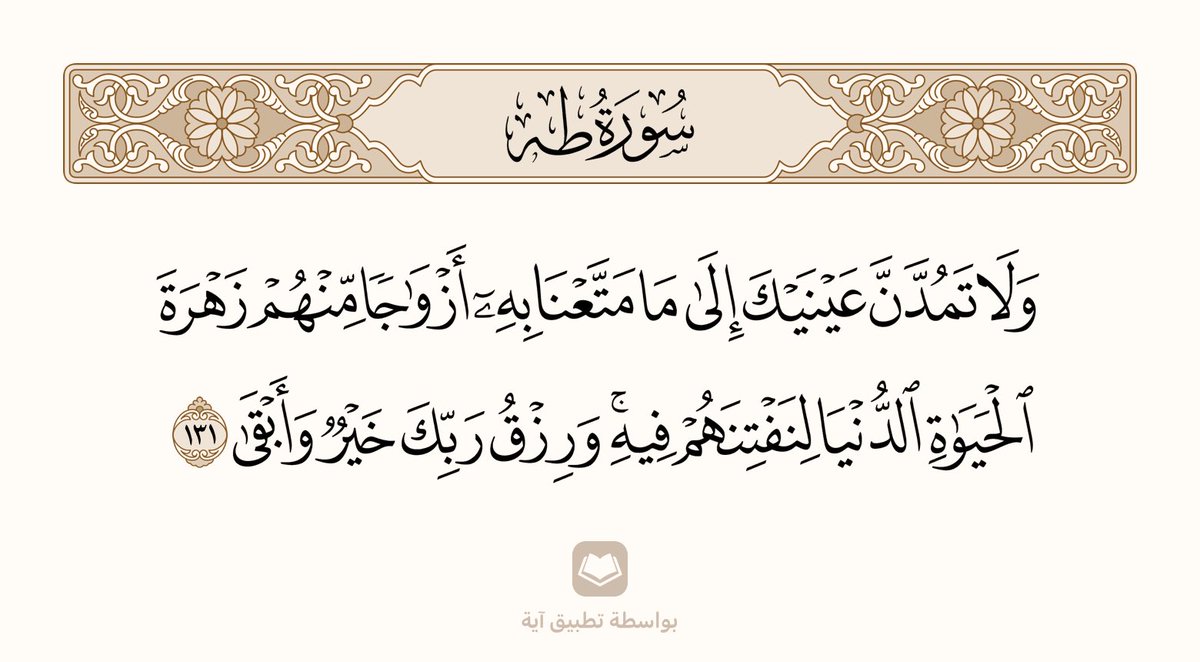 سُورَةُ طه
وَلَا تَمُدَّنَّ عَيْنَيْكَ إِلَىٰ مَا مَتَّعْنَا بِهِۦٓ أَزْوَٰجًا مِّنْهُمْ زَهْرَةَ
ٱلْحَيَوٰةِ ٱلدُّنْيَا لِنَفْتِنَهُمْ فِيهِ ۚ وَرِزْقُ رَبِّكَ خَيْرٌ وَأَبْقَىٰ ١٣١
بواسطة تطبيق آية